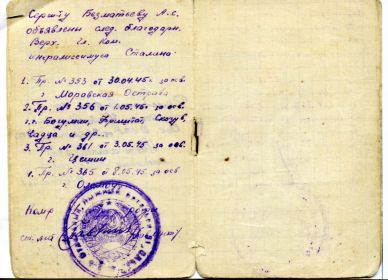 Сержту Безматьеву А.С.
объявлены след. благодарн.
Верх. Гл. Ком.
инералиссимуса Сталина:
1. Пр. № 353 от 30.04.45г. за осв.
г. Моравская Острава
2. Пр. № 356 от 1.05.45 за осв.
г.г. Богумин, Фриштат, Скочув,
Чадца и др..
3. Пр. № 361 от 3.05.45 за осв
г. Цешин
4. Пр. № 365 от 8.05.45 за осв
г. Оломоуц
Комр
ст. л-т